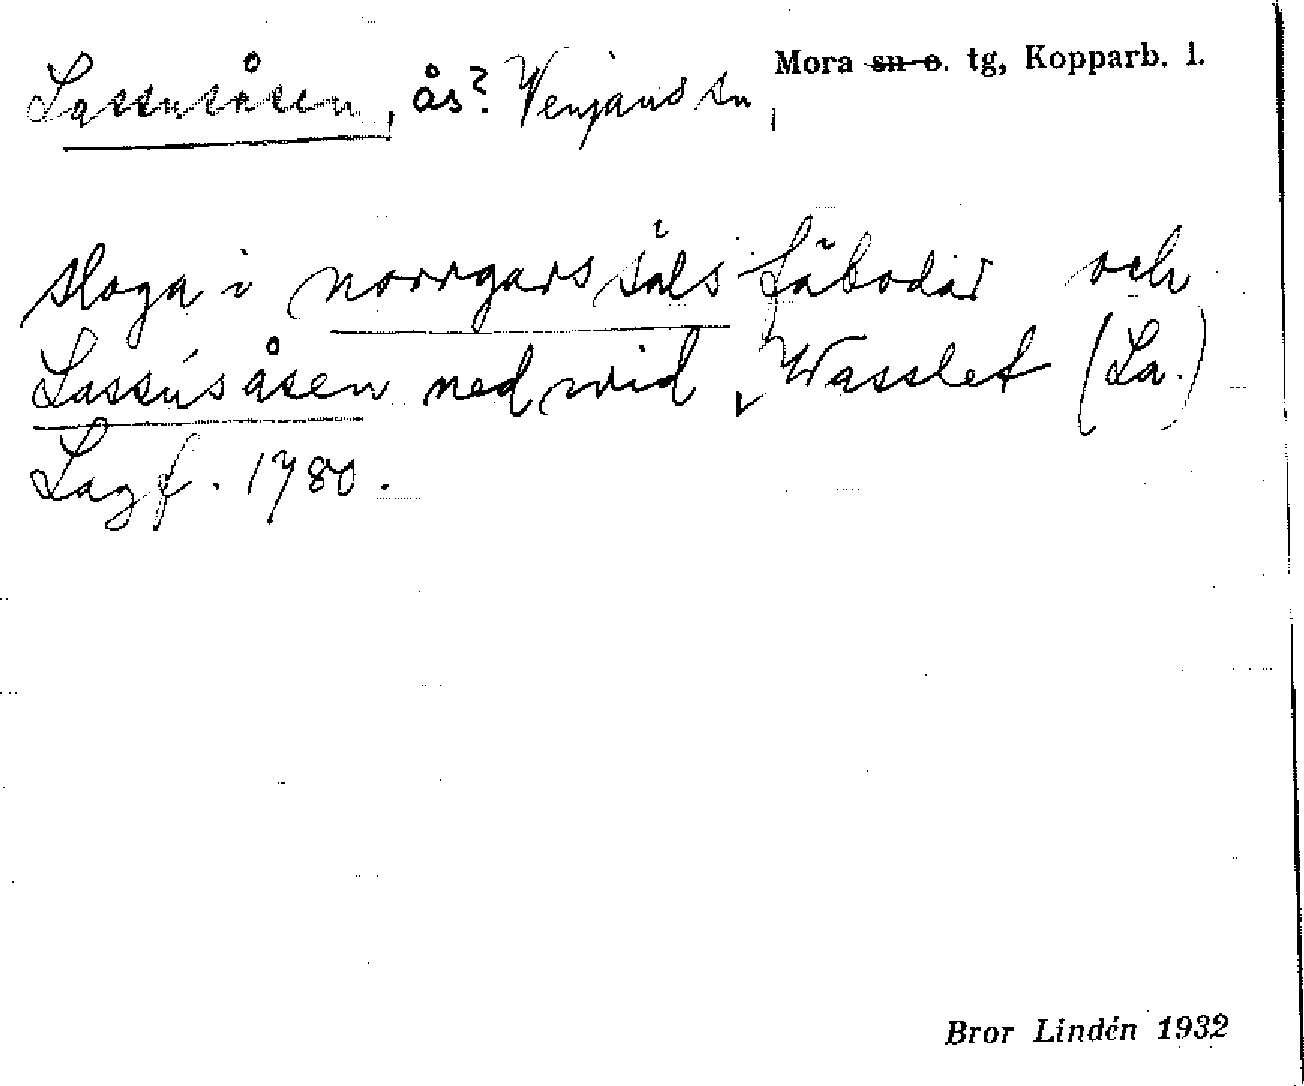 Lassusåsen, ås? Venjans sn, Mora sn o. tg, Kopparb. l.
sloga i norrgars säls fäbodar och
Lassusåsen ned wid Wasslet (La.)
Lagf. 1780.
Bror Lindén 1932